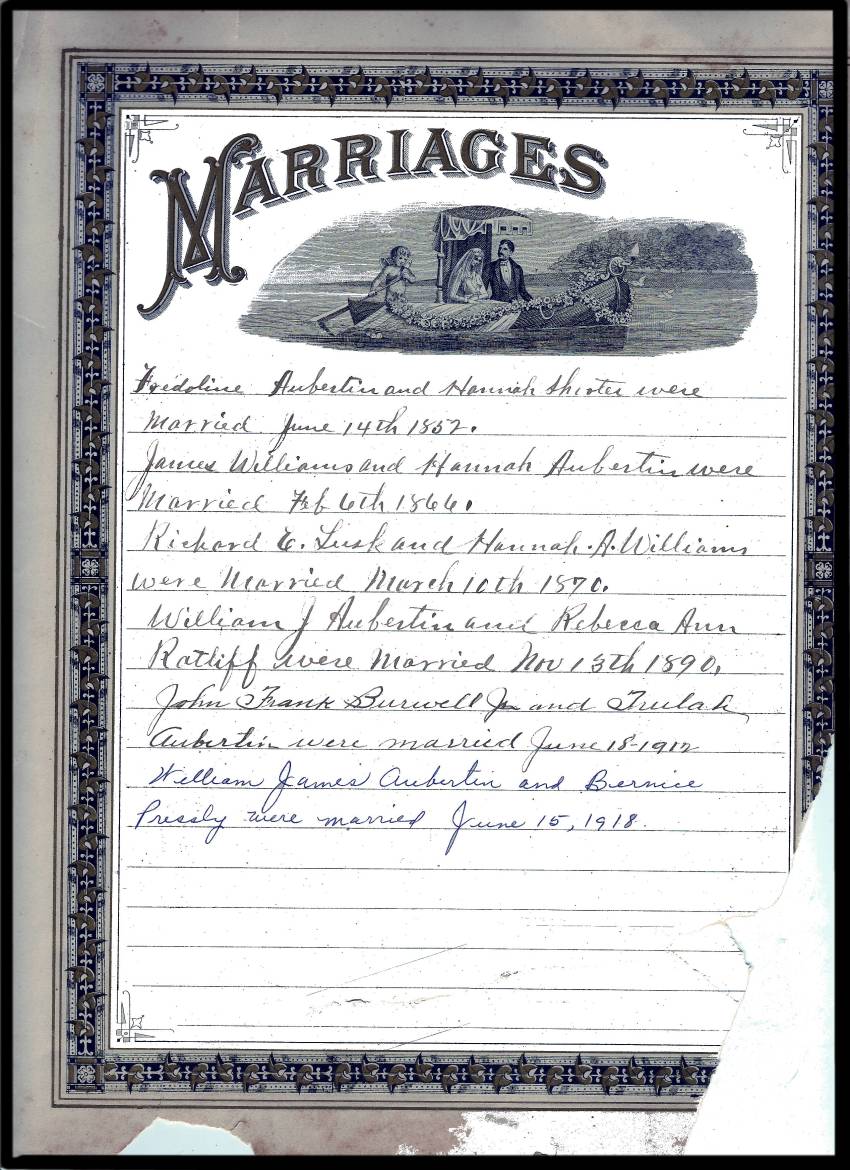 MARRIAGES
Fridoline Aubertin and Hannah Shorter were
Married June 14th 1852.
James Williams and Hannah Aubertin were
Married Feb 6th 1866.
Richard E. Lusk and Hannah. A. Williams
were Married March 10th 1870.
William J Aubertin and Rebecca Ann
Ratliff were Married Nov 13th 1890.
John Frank Burwell Jr and
Aubertin were married June 18-1912
William James Aubertin and Bernice
Pressly were married June 15, 1918.